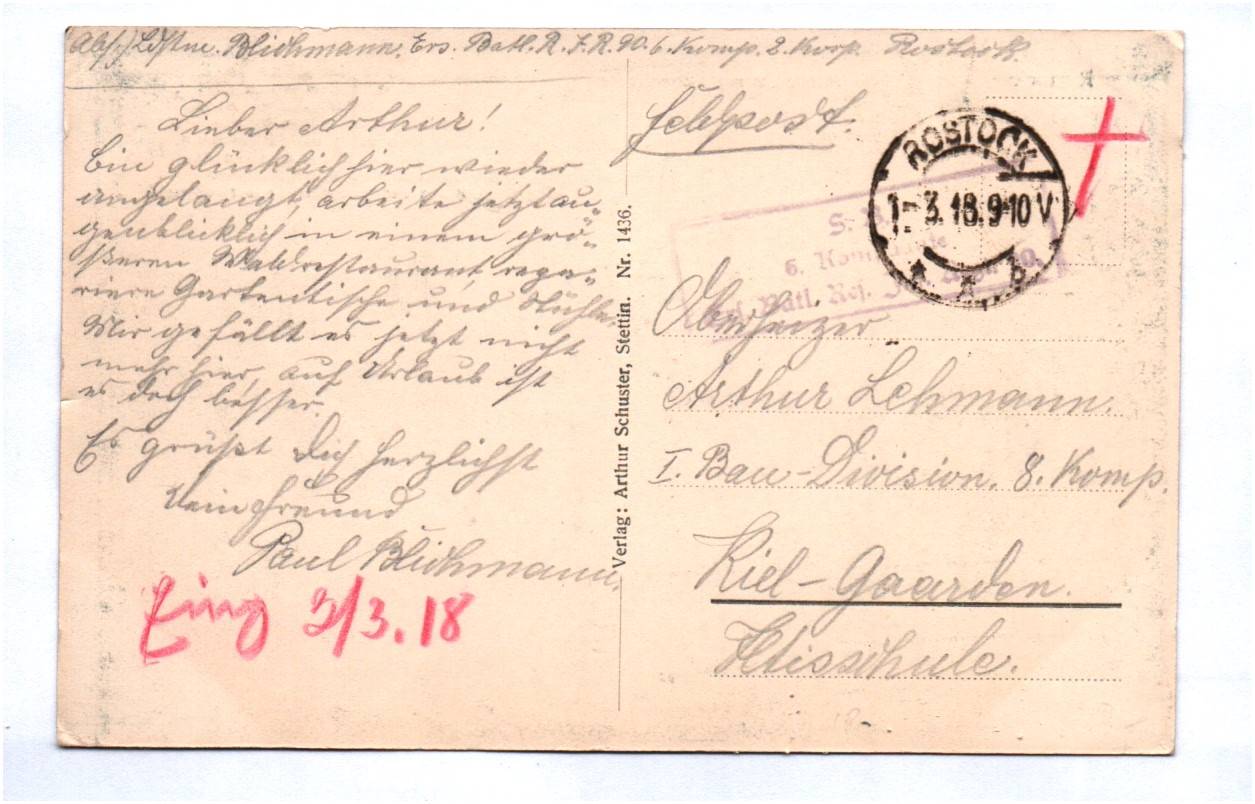 Abs.) Ldstm. Blidhmann. Ers. Batl. R. I. R. 90. 6. Komp. 2. Korp. Rostock.
Lieber Arthur!
Bin glücklich hier wieder
angelangt, arbeite jetzt au-
genblicklich in einem grö-
ßeren Waldrestaurant repa-
riere Gartentische und Stühle.
Mir gefällt es jetzt nicht
mehr hier, auf Urlaub ist
es doch besser.
Es grüßt Dich herzlichst
Dein Freund
Paul Blidhmann.
Eing 2/3.18
Verlag: Arthur Schuster, Stettin. Nr. 1436.
Feldpost.
ROSTOCK
1.3.18.9-10 V
S.
6. Kom
Batl. Res.
Oberheizer
Arthur Lehmann.
I. Bau-Division. 8. Komp.
Kiel-Gaarden.
Iltisschule.